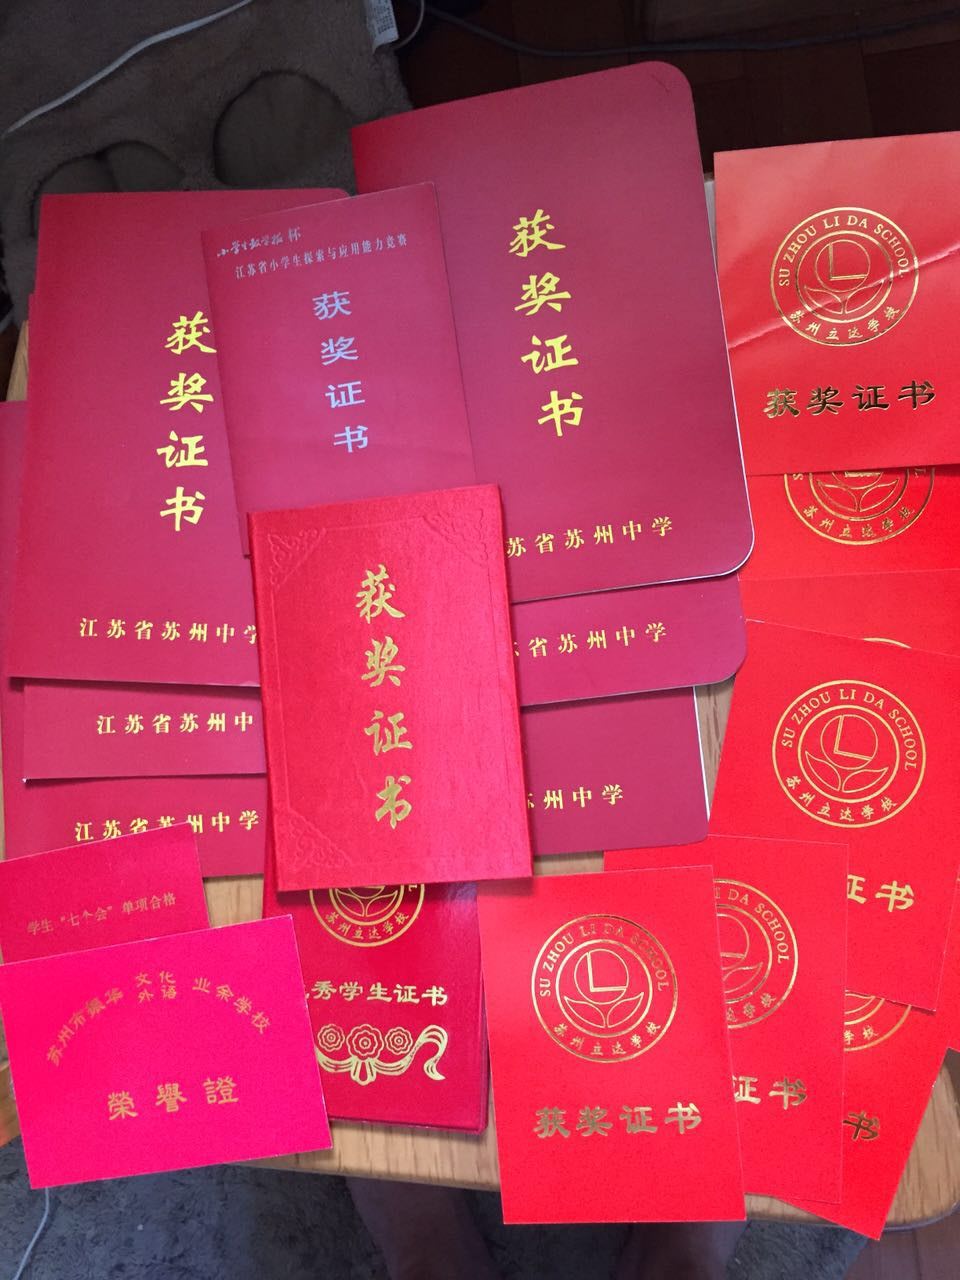 获奖证书
江苏省苏州中学
小学生数学报杯
江苏省小学生探索与应用能力竞赛
获奖证书
获奖证书
苏省苏州中学
SU ZHOU LI DA SCHOOL
苏州立达学校
获奖证书
苏州立达学校
获奖证书
江苏省苏州中
省苏州中学
江苏省苏州中学
州中学
SU ZHOU LI DA SCHOOL
苏州立达学校
证书
学生“七个会”单项合格
苏州市振华文化外语业余学校
榮譽證
苏州立达学校
秀学生证书
SU ZHOU LI DA SCHOOL
苏州立达学校
获奖证书
DA SCHOOL
证书
书